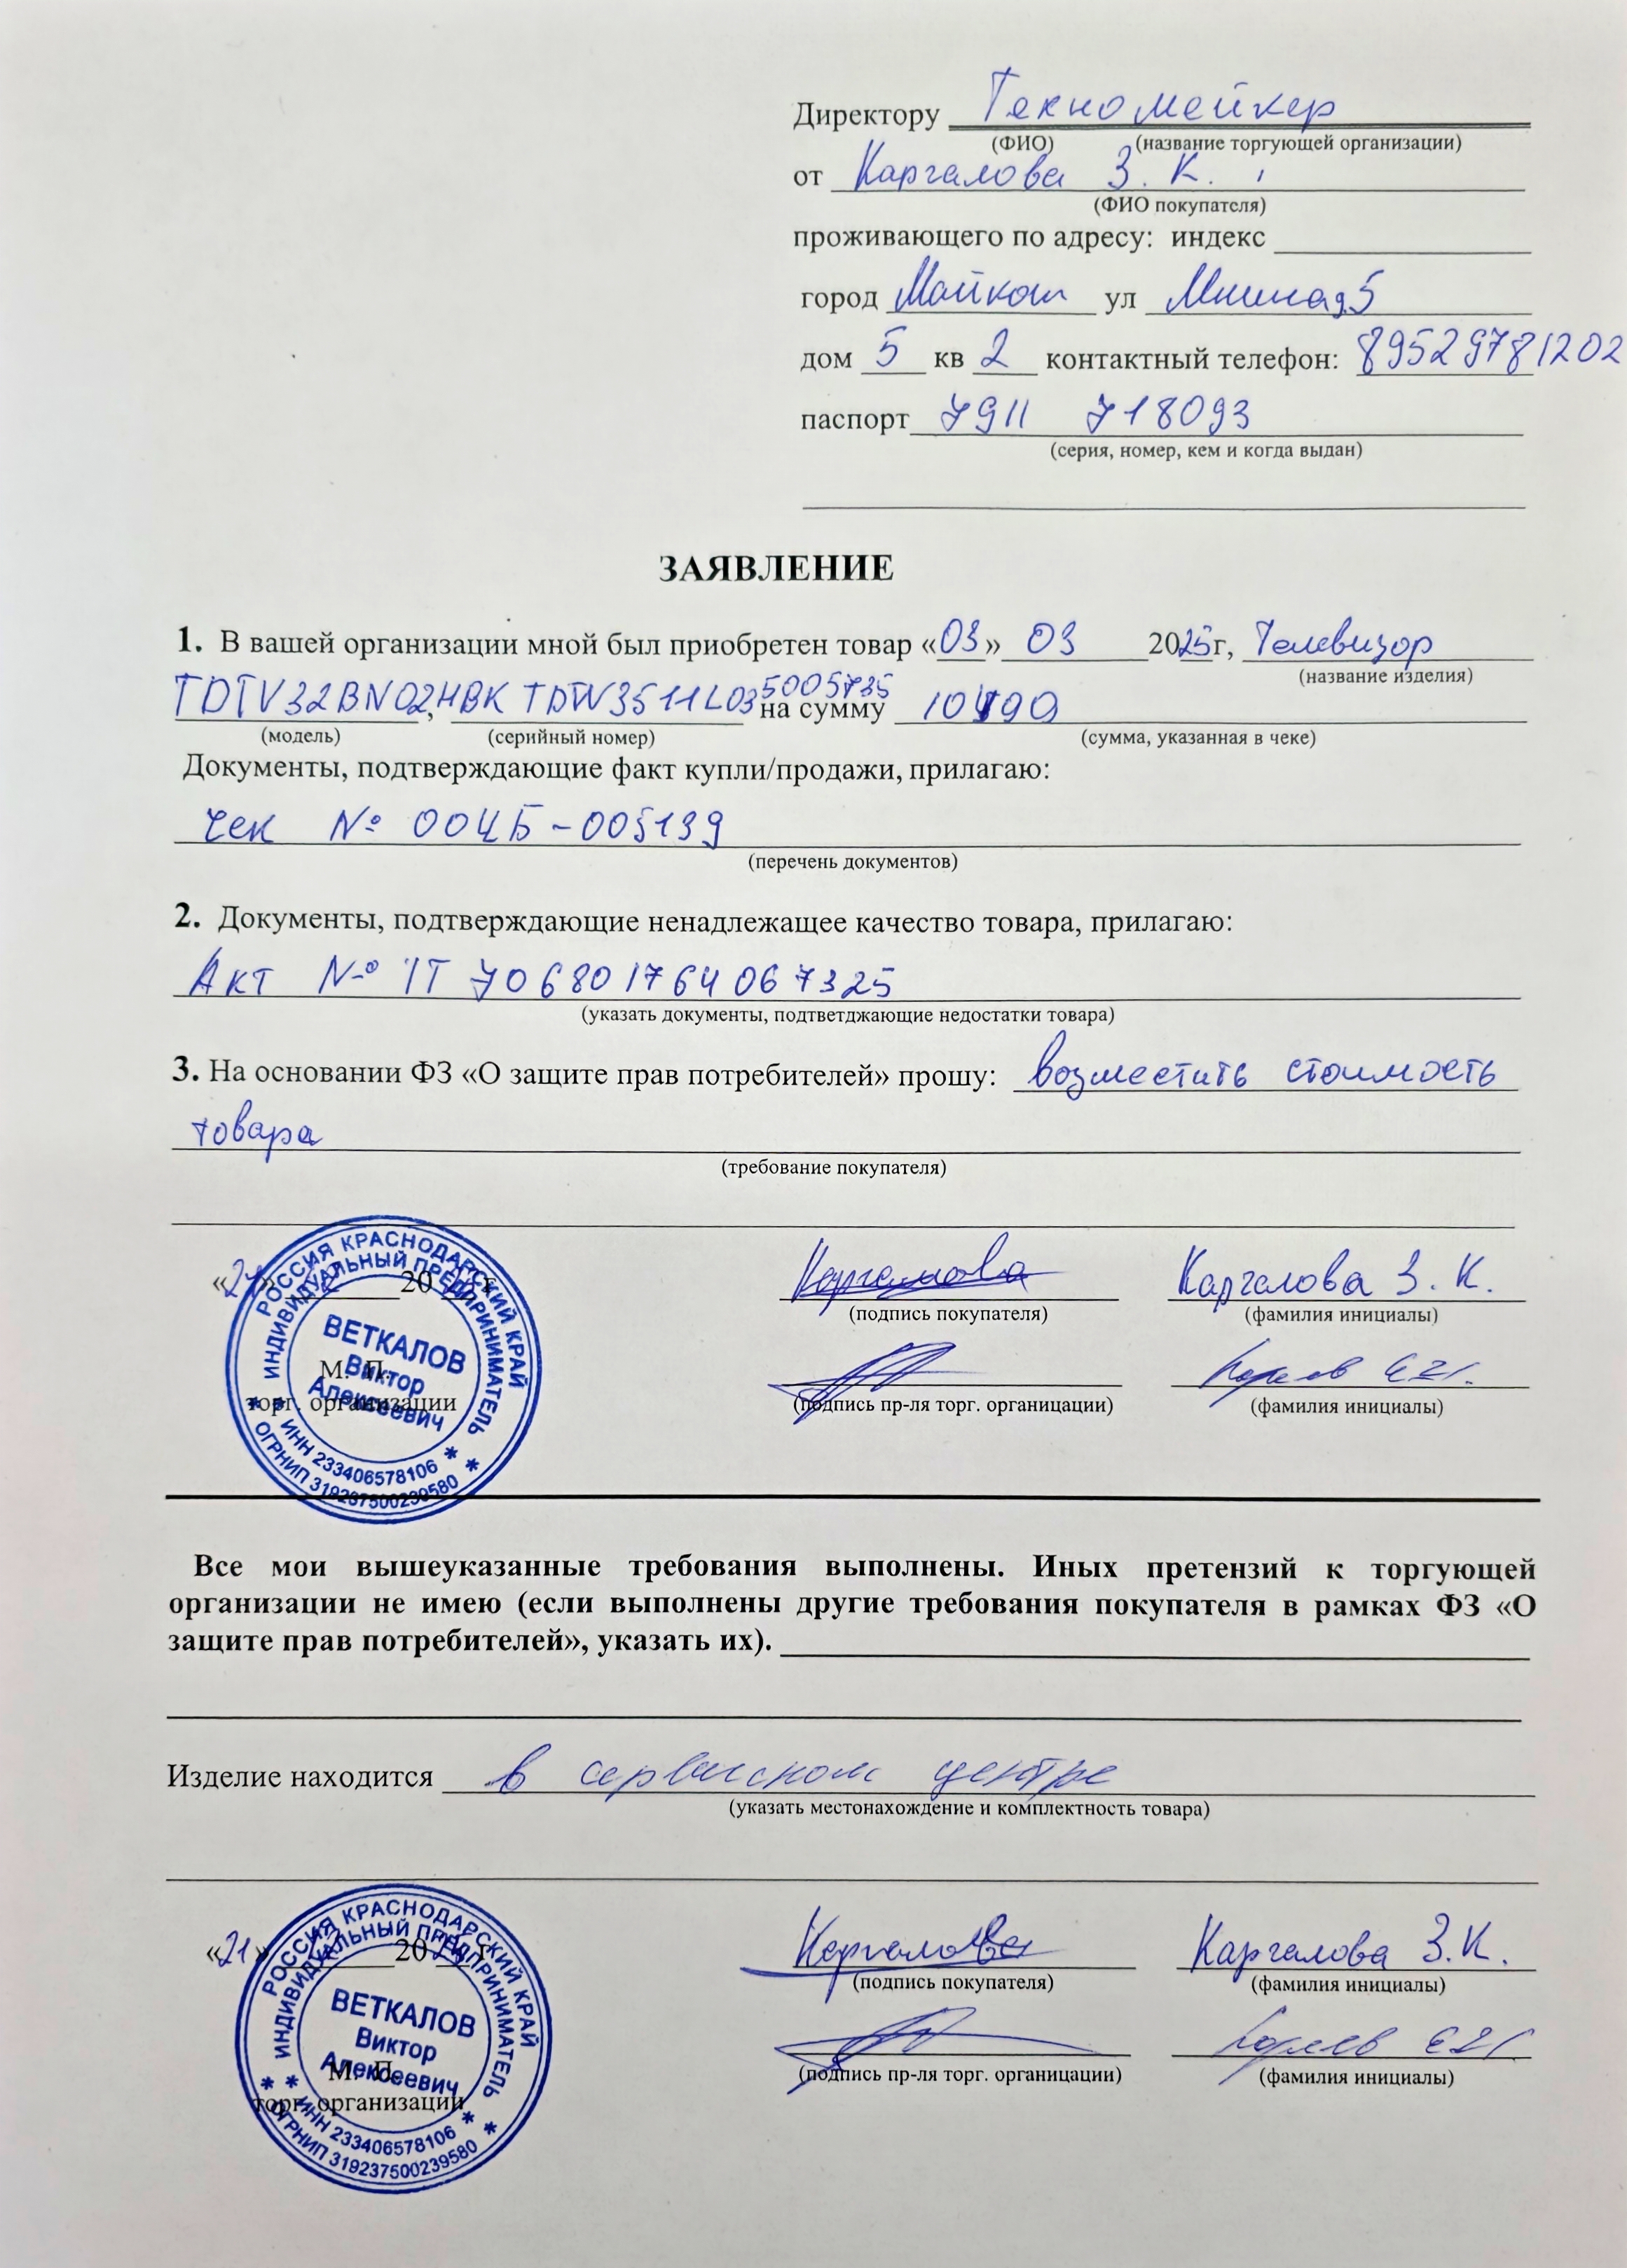 Директору Техномейкер
(ФИО) (название торгующей организации)
от Каргалова З. К.
(ФИО покупателя)
проживающего по адресу: индекс
город Майкоп ул
дом 5 кв 2 контактный телефон: 89529781202
паспорт 7911 718093
(серия, номер, кем и когда выдан)
ЗАЯВЛЕНИЕ
1. В вашей организации мной был приобретен товар «03» 03 2025г, Телевизор
(название изделия)
5005735
TDTV32BN02HBK TDTV3511L03 на сумму
(модель) (серийный номер) (сумма, указанная в чеке)
Документы, подтверждающие факт купли/продажи, прилагаю:
Чек № 004Б-005139
(перечень документов)
2. Документы, подтверждающие ненадлежащее качество товара, прилагаю:
Акт № 1Т 706801764067325
(указать документы, подтветджающие недостатки товара)
3. На основании ФЗ «О защите прав потребителей» прошу: возместить стоимость
товара
(требование покупателя)
«21» 20 г.
Каргалова Каргалова З. К.
(подпись покупателя) (фамилия инициалы)
М. П.
торг. организации
(подпись пр-ля торг. органицации) (фамилия инициалы)
РОССИЯ КРАСНОДАРСКИЙ КРАЙ
ИНДИВИДУАЛЬНЫЙ ПРЕДПРИНИМАТЕЛЬ
ВЕТКАЛОВ
Виктор
Алексеевич
ИНН 233406578106
ОГРНИП 319237500239580
Все мои вышеуказанные требования выполнены. Иных претензий к торгующей
организации не имею (если выполнены другие требования покупателя в рамках ФЗ «О
защите прав потребителей», указать их).
Изделие находится в сервисном центре
(указать местонахождение и комплектность товара)
«21» 20 г.
Каргалова Каргалова З.К.
(подпись покупателя) (фамилия инициалы)
М. П.
торг. организации
(подпись пр-ля торг. органицации) (фамилия инициалы)
РОССИЯ КРАСНОДАРСКИЙ КРАЙ
ИНДИВИДУАЛЬНЫЙ ПРЕДПРИНИМАТЕЛЬ
ВЕТКАЛОВ
Виктор
Алексеевич
ИНН 233406578106
ОГРНИП 319237500239580